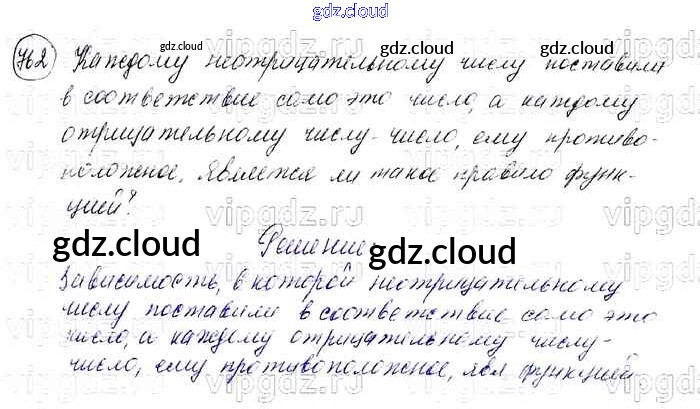 gdz.cloud
762 Каждому неотрицательному числу поставили
в соответствие само это число, а каждому
отрицательному числу - число, ему противо-
положное. Является ли такое правило функ-
цией?
Решение
Зависимость, в которой неотрицательному
числу поставили в соответствие само это
число, а каждому отрицательному числу -
число, ему противоположное, явл функцией.
gdz.cloud
gdz.cloud
gdz.cloud
gdz.cloud
gdz.cloud
gdz.cloud
gdz.cloud
vipgdz.ru